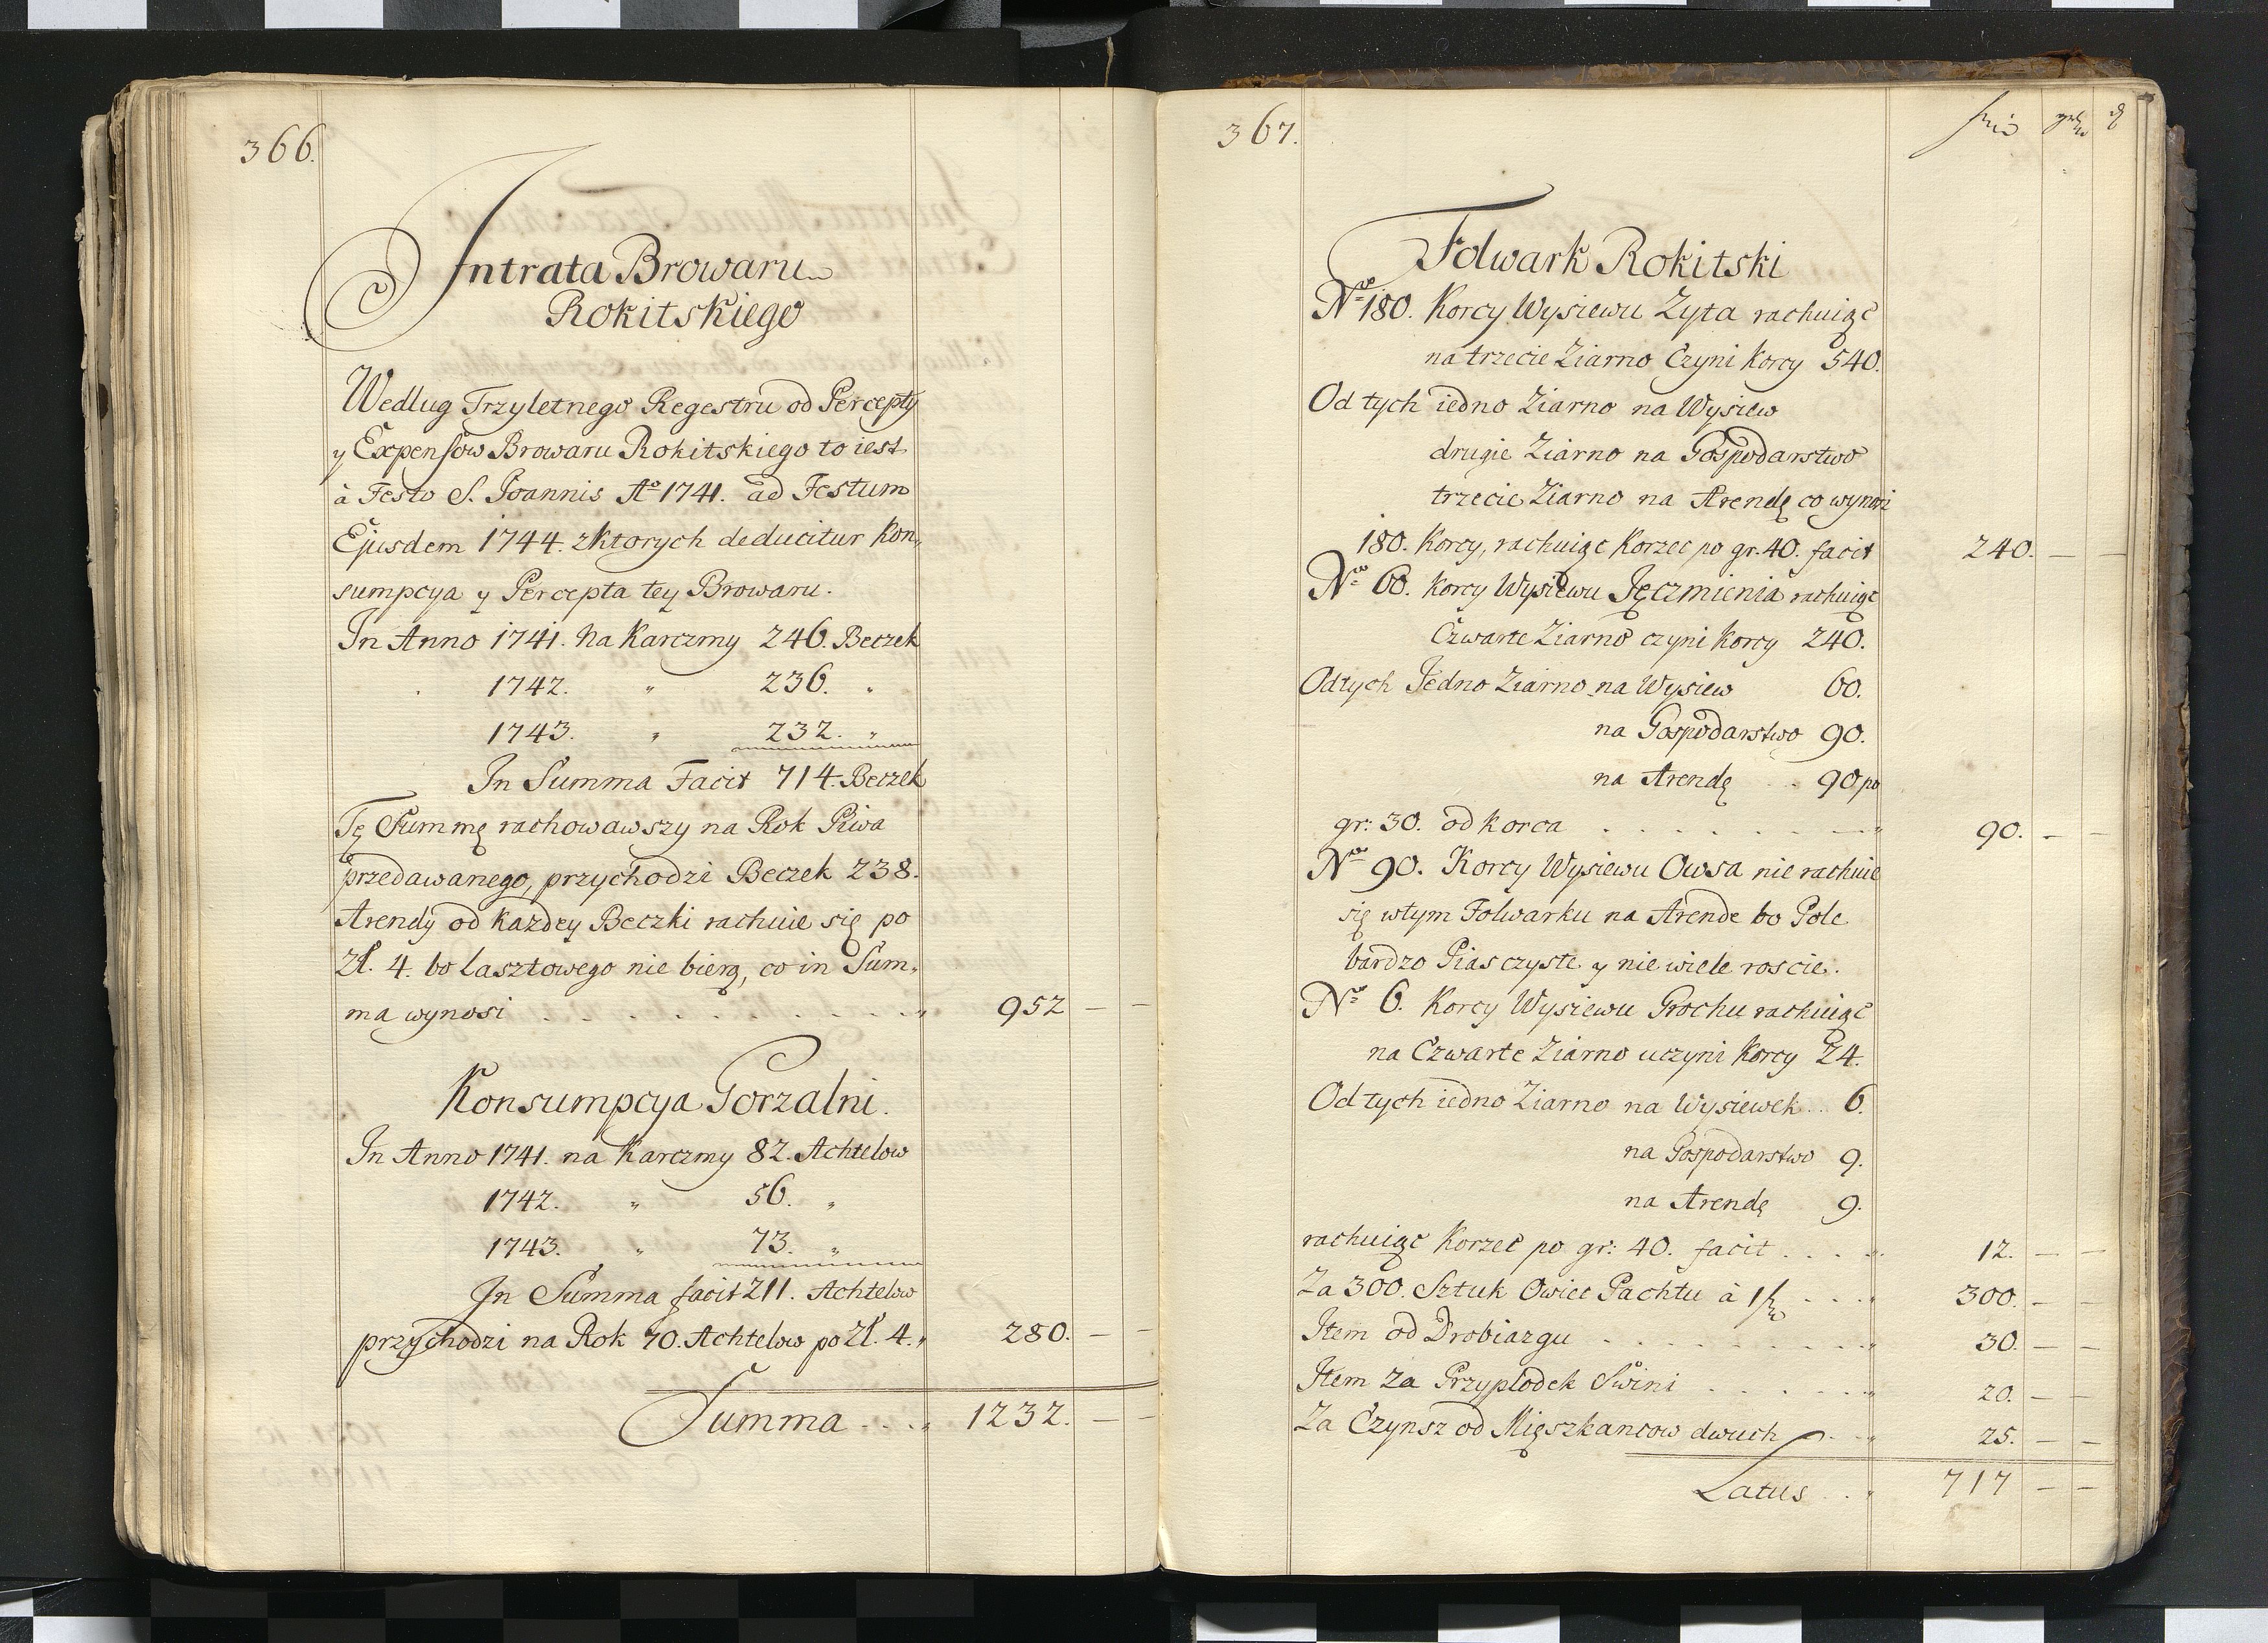 366.
Intrata Browaru
Rokitskiego
Wedlug Trzyletnego Regestru od Percepty
y Expensow Browaru Rokitskiego to iest
à Festo S. Joannis Aō 1741. ad Festum
Ejusdem 1744. zktorych deducitur Kon„
sumpcya y Percepta tey Browaru.
In Anno 1741. Na Karczmy 246. Beczek
1742. " 236. "
1743. " 232. "
In Summa Facit 714. Beczek
Tę Summę rachowawszy na Rok Piwa
przedawanego, przychodzi Beczek 238.
Arendy od każdey Beczki rachuie się po
Zł. 4. bo Lasztowego nie bierą, co in Sum„
ma wynosi . . . . . . . . . . " 952 – –
Konsumpcya Gorzalni.
In Anno 1741. na Karczmy 82. Achtelow
1742. " 56. "
1743. " 73. "
In Summa facit 211. Achtelow
przychodzi na Rok 70. Achtelow po Zł. 4. " 280. – –
Summa . . . " 1232. – –
367.
Folwark Rokitski
No 180. Korcy Wysiewu Zyta rachuiąc
na trzecie Ziarno Czyni Korcy 540.
Od tych iedno Ziarno na Wysiew
drugie Ziarno na Gospodarstwo
trzecie Ziarno na Arendę co wynosi
180. Korcy, rachuiąc Korzec po gr. 40. facit 240. – –
No 60. Korcy Wysiewu Jęczmienia rachuiąc
Czwarte Ziarno czyni Korcy 240.
Od tych Jedno Ziarno na Wysiew 60.
na Gospodarstwo 90.
na Arendę . . 90 po
gr: 30. od korca . . . . . . . . " 90. – –
No 90. Korcy Wysiewu Owsa nie rachuie
się wtym Folwarku na Arende bo Pole
bardzo Piasczyste y nie wiele roscie.
No 6. Korcy Wysiewu Grochu rachuiąc
na Czwarte Ziarno uczyni Korcy 24.
Od tych iedno Ziarno na Wysiewek . . 6.
na Gospodarstwo 9.
na Arendę 9.
rachuiąc Korzec po gr: 40. facit . . . . " 12. – –
Za 300. Sztuk Owiec Pachtu à 1 . . . " 300. – –
Item od Drobiazgu . . . . . . . . . " 30. – –
Item Za Przyplodek Swini . . . . . . " 20. – –
Za Czynsz od Mięszkancow dwuch . . " 25. – –
Latus . . " 717 – –